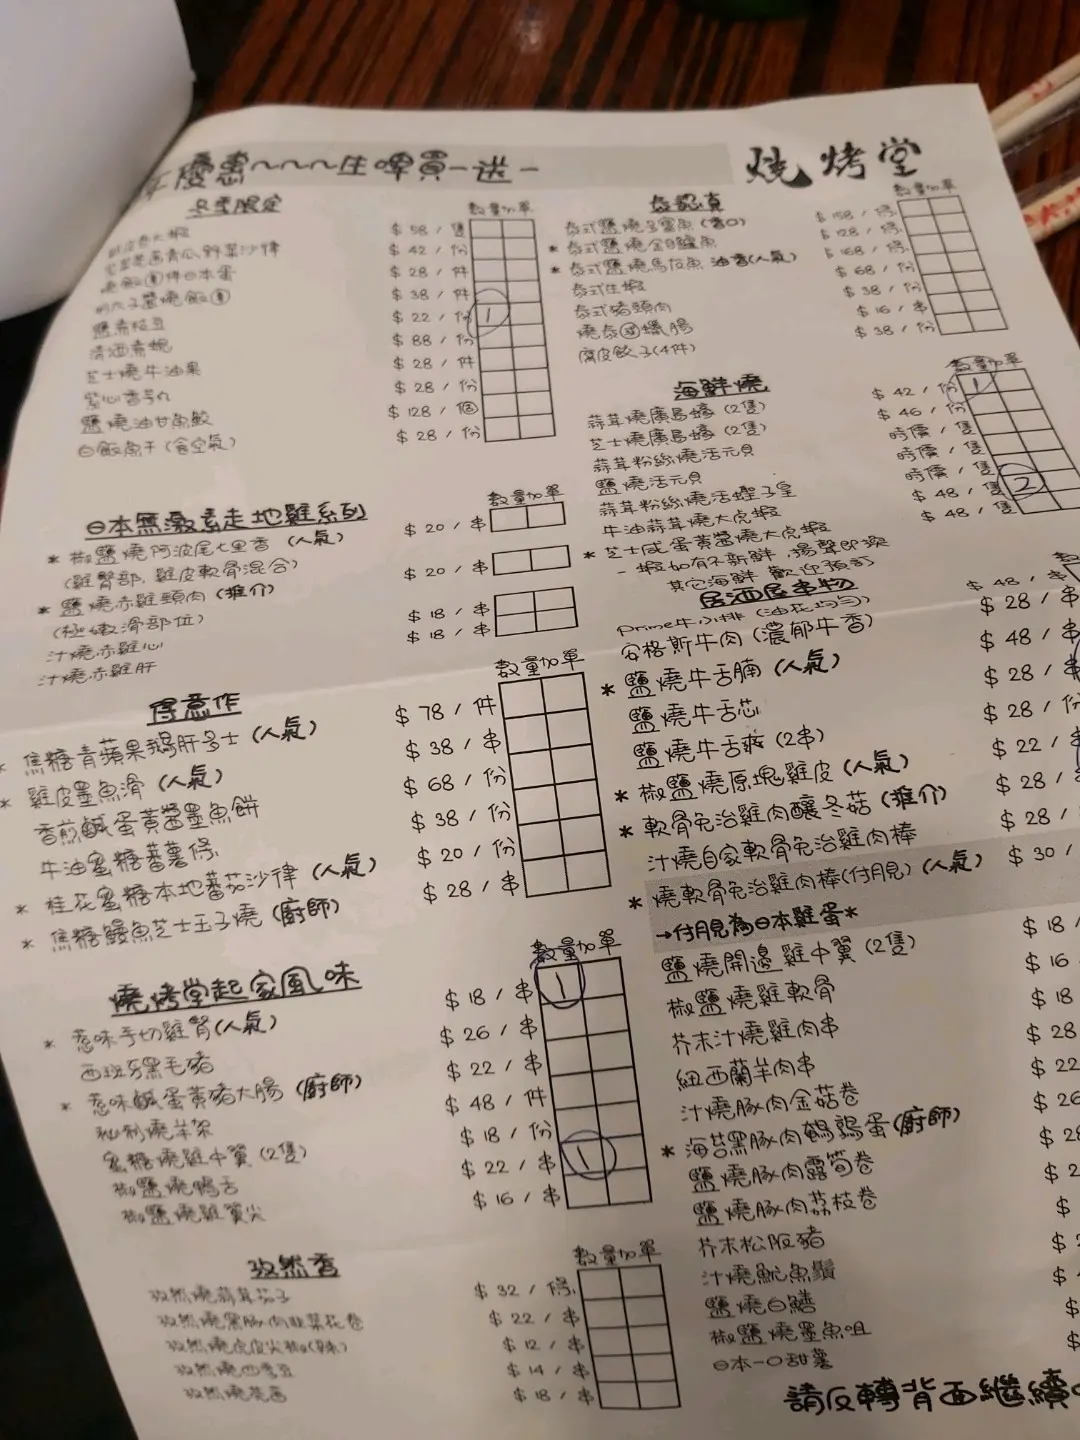 優惠~~~生啤買一送一
燒烤堂
冬季限定
數量加單
$58/隻
$42/份
$28/件
$38/件
鹽煮枝豆 $22/份 1
清酒煮蜆 $88/份
芝士燒牛油果 $28/件
紫心番薯 $28/份
鹽燒油甘魚鮫 $128/個
白飯魚干(食空氣) $28/份
日本無激素走地雞系列
數量加單
* 椒鹽燒阿波尾七里香(人氣) $20/串
(雞臀部, 雞皮軟骨混合)
* 鹽燒赤雞頸肉(推介) $20/串
(極嫩滑部位)
汁燒赤雞心 $18/串
汁燒赤雞肝 $18/串
得意作
數量加單
* 焦糖青蘋果鵝肝多士(人氣) $78/件
* 雞皮墨魚滑(人氣) $38/串
香煎鹹蛋黃醬墨魚餅 $68/份
牛油蜜糖蕃薯條 $38/份
* 桂花蜜糖本地蕃茄沙律(人氣) $20/份
* 焦糖鰻魚芝士玉子燒(廚師) $28/串
燒烤堂起家風味
數量加單
* 葱味手切雞腎(人氣) $18/串 1
西班牙黑毛豬 $26/串
* 葱味鹹蛋黃豬大腸(廚師) $22/串
秘制燒羊架 $48/件
蜜糖燒雞中翼(2隻) $18/份
椒鹽燒鴨舌 $22/串 1
椒鹽燒雞翼尖 $16/串
孜然香
數量加單
孜然燒蒜茸茄子 $32/條
孜然燒黑豚肉韭菜花卷 $22/串
孜然燒虎皮尖椒(辣) $12/串
孜然燒四季豆 $14/串
$18/串
泰認真
數量加單
$158/條
* 泰式鹽燒金目鱸魚 $128/條
* 泰式鹽燒馬友魚 油香(人氣) $168/條
泰式生蝦 $68/份
泰式豬頸肉 $38/份
$16/串
腐皮餃子(4件) $38/份
海鮮燒
數量加單
蒜茸燒廣島蠔(2隻) $42/份 1
芝士燒廣島蠔(2隻) $46/份
蒜茸粉絲燒活元貝 時價/隻
鹽燒活元貝 時價/隻
蒜茸粉絲燒活聖子皇 時價/隻
牛油蒜茸燒大虎蝦 $48/隻 2
* 芝士咸蛋黃醬燒大虎蝦 $48/隻
-蝦如有不新鮮, 揚聲即換
其它海鮮 歡迎預訂
居酒屋串物
Prime牛小排(油花均勻) $48/串
安格斯牛肉(濃郁牛香) $28/串
* 鹽燒牛舌腩(人氣) $48/串
鹽燒牛舌芯 $28/串
鹽燒牛舌爽(2串) $28/份
* 椒鹽燒原塊雞皮(人氣) $22/串
* 軟骨免治雞肉釀冬菇(推介) $28/
汁燒自家軟骨免治雞肉棒 $28/
* 燒軟骨免治雞肉棒(付月見)(人氣) $30/
→付月見為日本雞蛋*
鹽燒開邊雞中翼(2隻) $18/
椒鹽燒雞軟骨 $16
芥末汁燒雞肉串 $18
紐西蘭羊肉串 $28
汁燒豚肉金菇卷 $22
* 海苔黑豚肉鵪鶉蛋(廚師) $26
鹽燒豚肉露筍卷 $28
鹽燒豚肉荔枝卷 $2
芥末松阪豬 $
汁燒魷魚鬚
鹽燒白鱔
椒鹽燒墨魚咀
日本一口甜薯
請反轉背面繼續